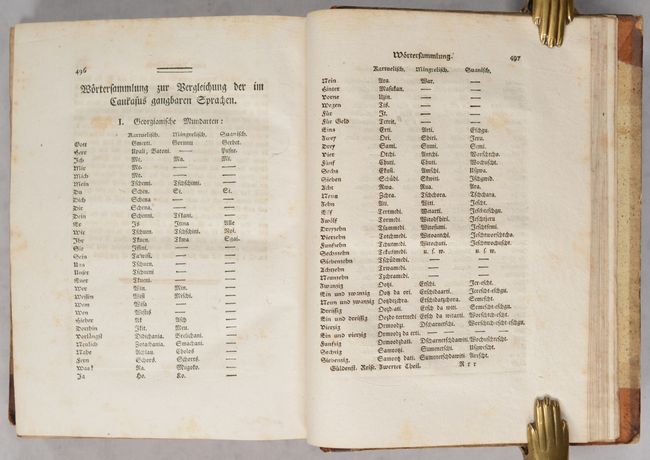 496
Wörtersammlung zur Vergleichung der im
Caukasus gangbaren Sprachen.
I. Georgianische Mundarten:
Karwelisch. Mingrelisch. Suanisch.
Gott Gmerti. Gorunu Gerbet.
Herr Upali, Batoni. — Pusne.
Ich Me. Ma. Mi.
Mir Me. — —
Mich Me. — —
Mein Tschemi. Tschschimi. —
Du Schen. Si. Si.
Dir Schena — —
Dich Schena. — —
Dein Schenni. Skani. —
Er Is Inna Alle
Wir Tschuen. Tschschini. Noi.
Ihr Tkuen. Tkwa Sgai.
Sie Issini. — —
Sein — —
Uns Tschuen. — —
Unser Tschueni — —
Euer Tkueni. — —
Wer Win. Min. —
Wessen Wisi Meschi. —
Wem Wisa — —
Wen — —
Hieher Ak Asch —
Dorthin Ikit. Meu. —
Vorlängst Didichnia. Breschani. —
Neulich Zotachania. Smachani —
Nahe Achlau Cholos —
Fern Schors. Schorrs. —
Was? Ra. Mugoko. —
Ja Ho. Ko. —
Wörtersammlung. 497
Karwelisch. Mingrelisch. Suanisch.
Nein Ara. War. —
Hinter Masukan. — —
Vorne Uzin. — —
Wegen Tis. — —
Für It. — —
Für Geld Tetrit. — —
Eins Erti. Arti. Eschgu.
Zwey Ori. Shiri. Jeru.
Drey Sami. Sumi. Semi.
Vier Otchi. Antchi. Worschtcho.
Fünf Chuti. Chuti. Wochuscht.
Sechs Ekusi. Amschi. Usgwa.
Sieben Schüdi. Skwiti. Ischgwid.
Acht Rwa. Rua. Ara.
Neun Zchra. Tschchora. Tschchara.
Zehn Ati. Witi. Jescht.
Elf Tertmedi. Witarti. Jeschteschgu.
Zwölf Tormedi. Witoshiri. Jeschtjeru
Dreyzehn Tsammedi. Witosumi. Jeschtsemi.
Vierzehn Totchmedi. Witoantchi. Jeschtworschtcho.
Funfzehn Tchutmedi. Witochuti. Jeschtwochuscht.
Sechzehn Tekusmedi. u. s. w. u. s. w.
Siebenzehn Tschüdmedi. — —
Achtzehn Trwamedi. — —
Neunzehn Tzchramedi. — —
Zwanzig Ootzi. Erschi. Jer-escht.
Ein und zwanzig Ootz da eri. Erschidaarti. Jerescht-eschgu.
Neun und zwanzig Ootzdazchra. Erschidatzchora. Semescht.
Dreißig Ootz da ati. Ersch da witi. Semescht-eschgu.
Ein und dreißig Ootz-da-tertmedi Ersch da witarti. Worschtcho-escht.
Vierzig Ormootzi. Dscharnerschi. Worschtcho-escht-eschgu.
Ein und vierzig Ormootz da erti. — —
Funfzig Ormootzdati. Dscharnerschdawiti. Wochuschtescht.
Sechzig Samotzi. Summerschi. Usgwescht.
Siebenzig. Samotz dati. Summerschdawiti. Arescht.
Güldenst. Reise. Zweyter Theil. R r r